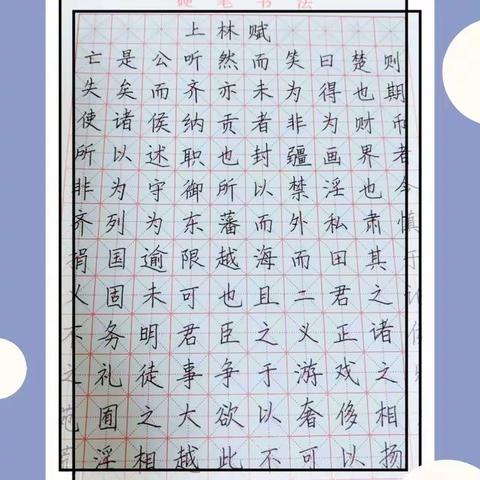 硬笔书法
上林赋
亡是公听然而笑曰楚则
失矣而齐亦未为得也期
使诸侯纳贡者非为财币
所以述职也封疆画界者
非为守御所以禁淫也今
齐列为东藩而外私肃慎
捐国逾限越海而田其于
义固未可也且二君之论
不务明君臣之义正诸侯
之礼徒事争于游戏之
苑囿之大欲以奢侈相
淫相越此不可以扬